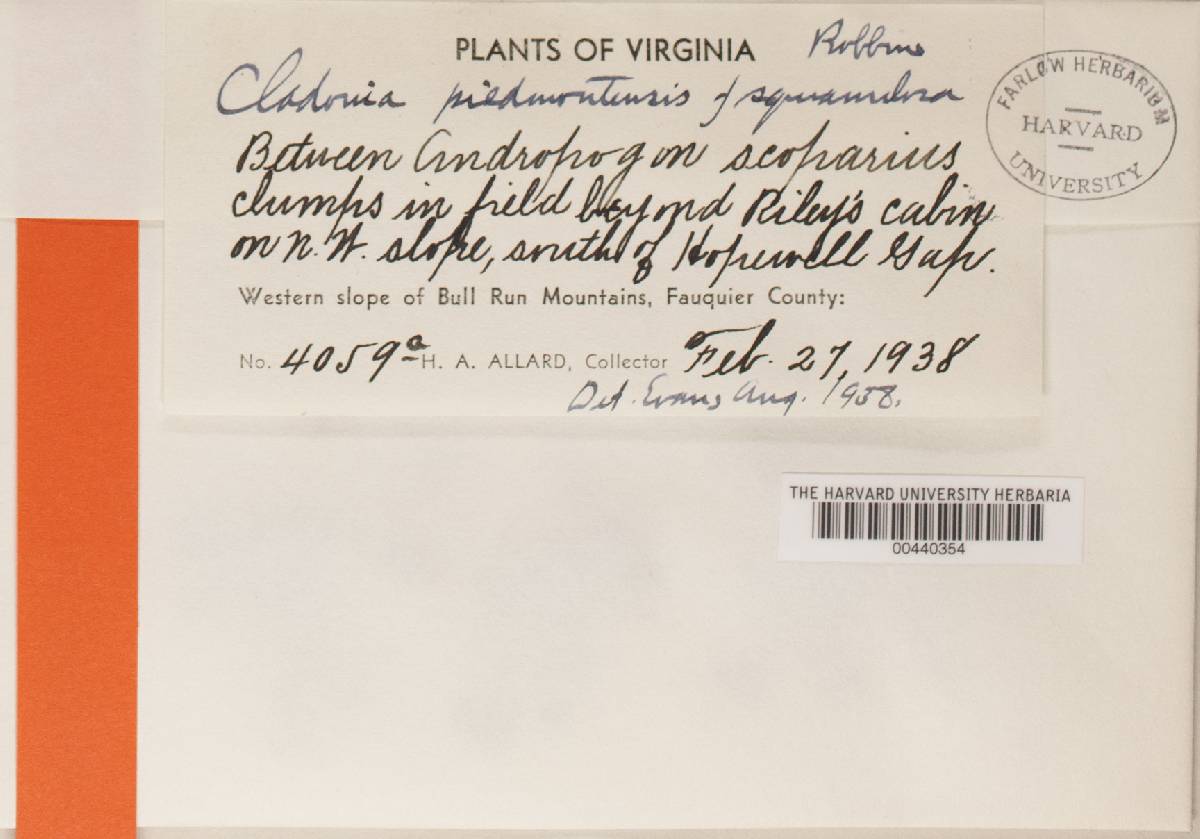 PLANTS OF VIRGINIA Robbins
Cladonia piedmontensis f squamulosa
Between Andropogon scoparius
clumps in field beyond Riley's cabin
on N.W. slope, south of Hopewell Gap.
Western slope of Bull Run Mountains, Fauquier County:
No. 4059a H. A. ALLARD, Collector Feb. 27, 1938
Det. Evans Aug. 1938.
FARLOW HERBARIUM
HARVARD
UNIVERSITY
THE HARVARD UNIVERSITY HERBARIA
00440354